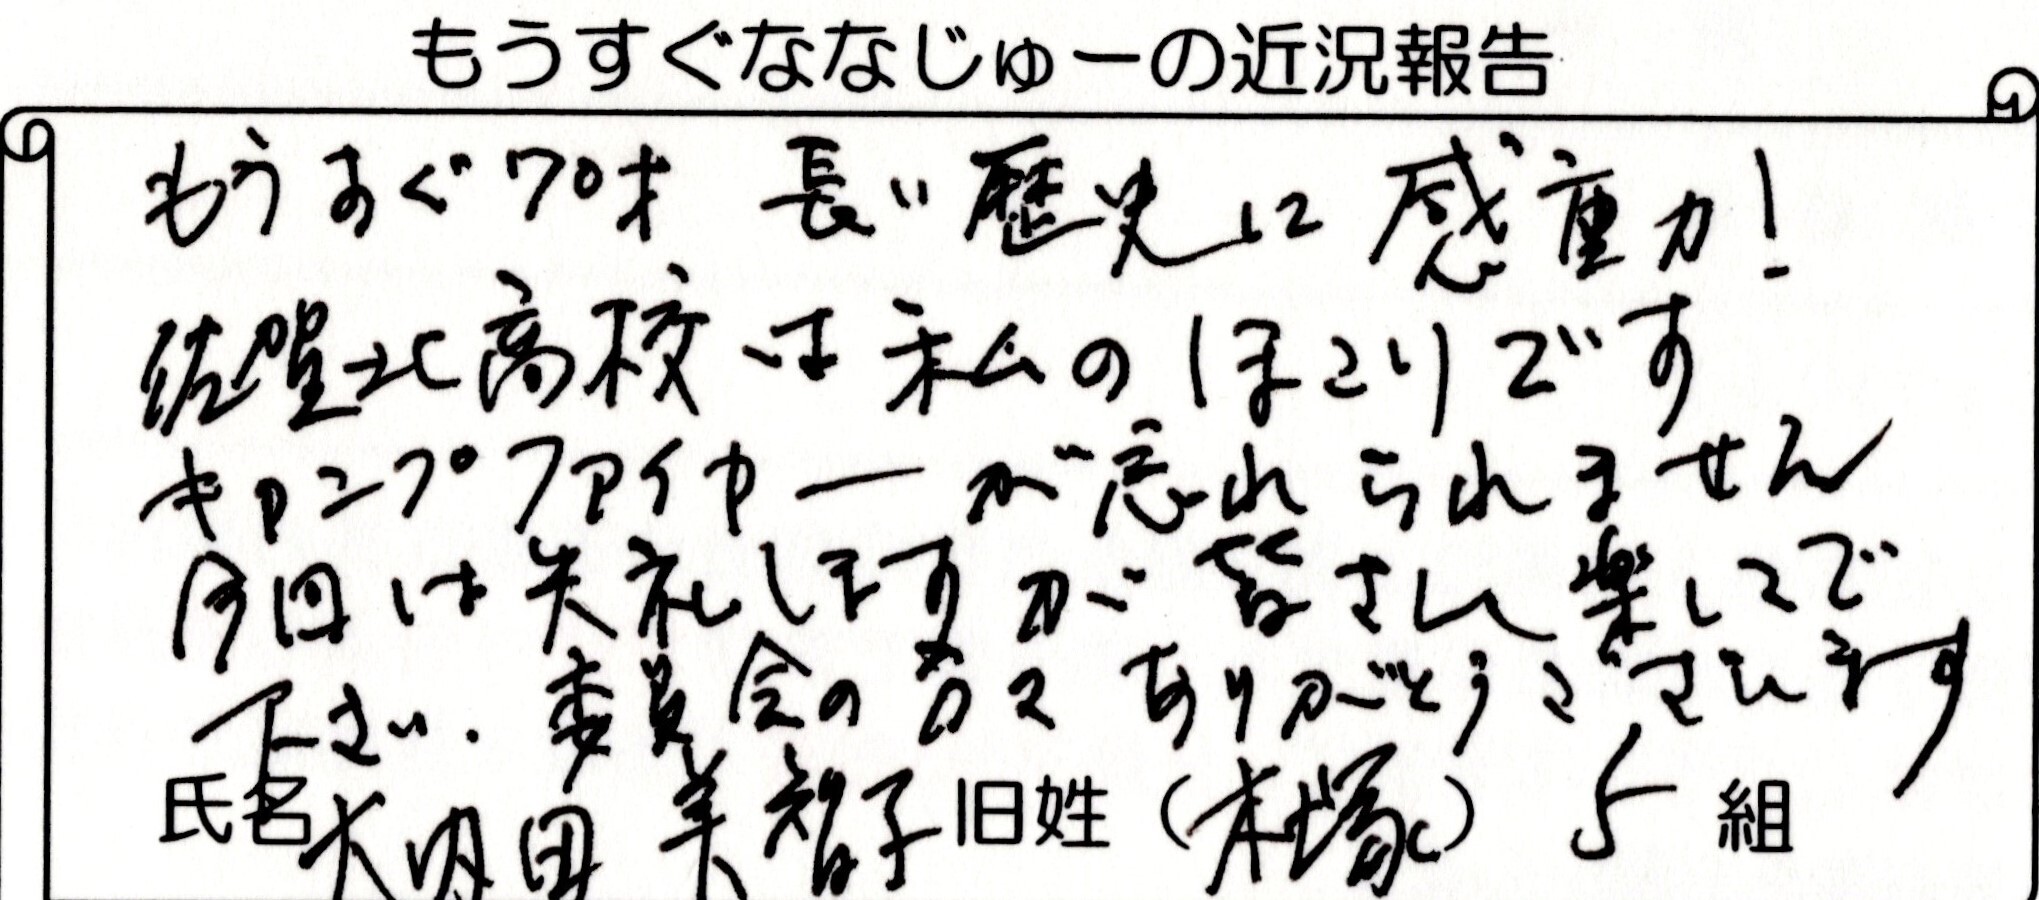 もうすぐななじゅーの近況報告
もうすぐ70才 長い歴史に感重力!
佐賀北高校は私のほこりです
キャンプファイヤーが忘れられません
今回は失礼しますが皆さん楽しんで
下さい.委員会の方々ありがとうございます
氏名 大内田 美智子 旧姓(末塚) 5 組